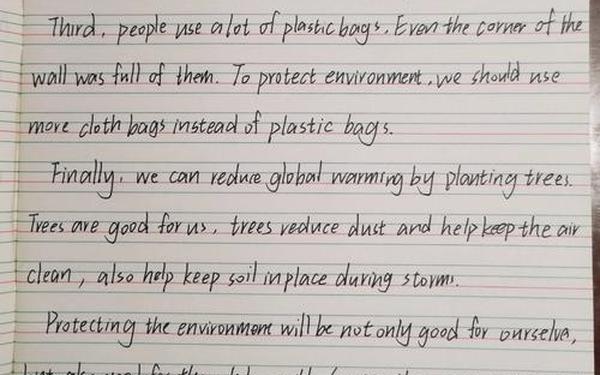 Third, people use a lot of plastic bags. Even the corner of the
wall was full of them. To protect environment, we should use
more cloth bags instead of plastic bags.
Finally, we can reduce global warming by planting trees.
Trees are good for us, trees reduce dust and help keep the air
clean, also help keep soil in place during storms.
Protecting the environment will be not only good for ourselve,